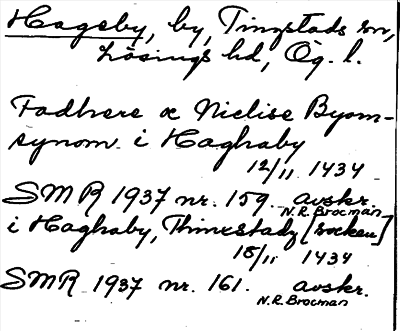 Hageby, by, Tingstads sn,
Lösings hd, Ög. l.
Fadhere æ Nielise Byom-
synom i Haghaby
12/11 1434
SMR 1937 nr. 159. avskr.
N.R. Brocman
i Haghaby, Thinxstady [socken]
18/11 1434
SMR 1937 nr. 161. avskr.
N.R. Brocman